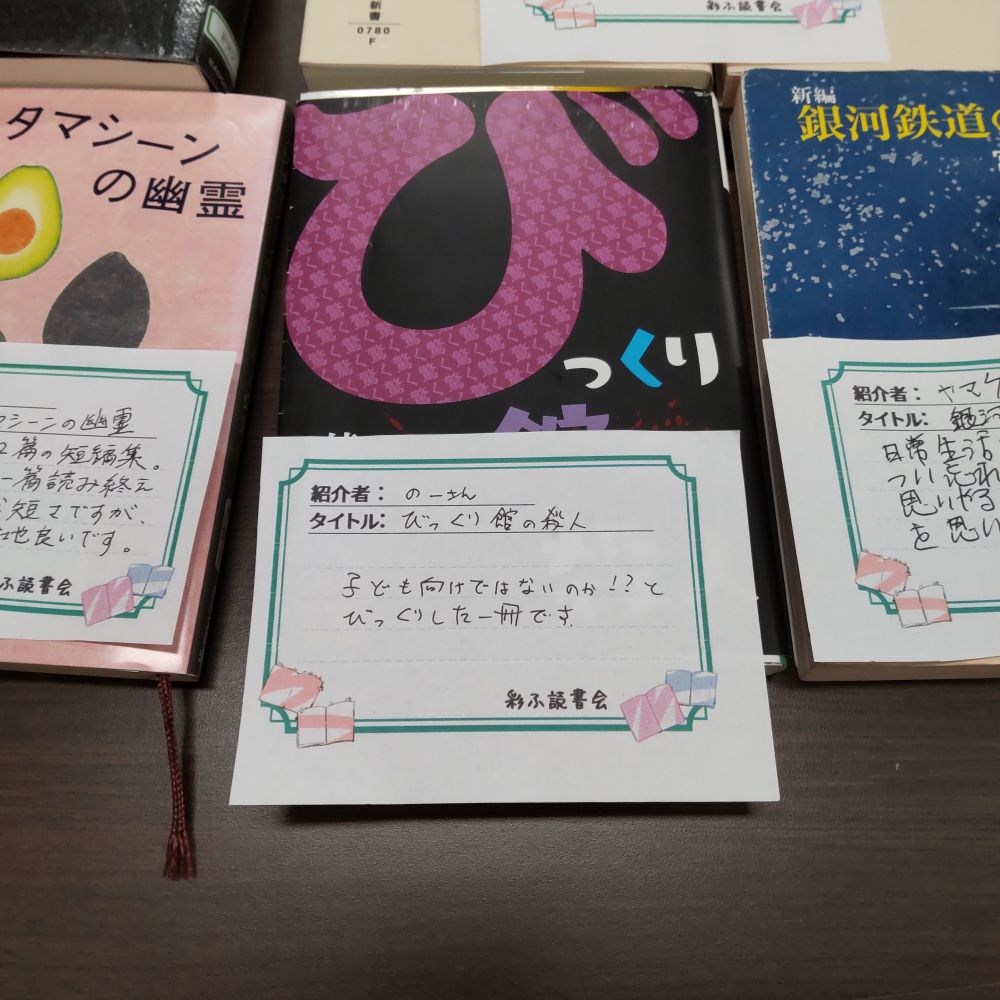 新書
0780
F
彩ふ読書会
タマシーン
の幽霊
びっくり
館
新編
銀河鉄道
マシーンの幽霊
篇の短編集。
一篇読み終え
短さですが、
地良いです。
ふ読書会
紹介者: のーさん
タイトル: びっくり館の殺人
子ども向けではないのか!?と
びっくりした一冊です。
彩ふ読書会
紹介者: ヤマ
タイトル: 銀河
日常生活
つい忘れ
思いやる
を思い